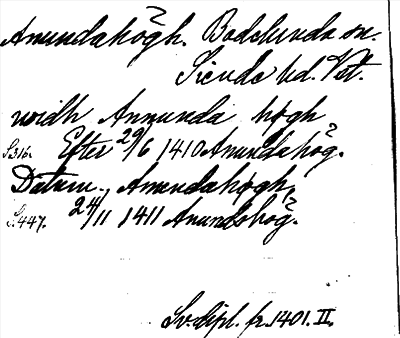 Amundahögh. Badelunda sn.
Siende hd. Vst.
widh Anmunda høgh
S316. Efter 29/6 1410 Amundahög?
Datum., Amundahøgh,
S.447. 24/11 1411 Anundshög?
Sv. dipl. fr. 1401. II.